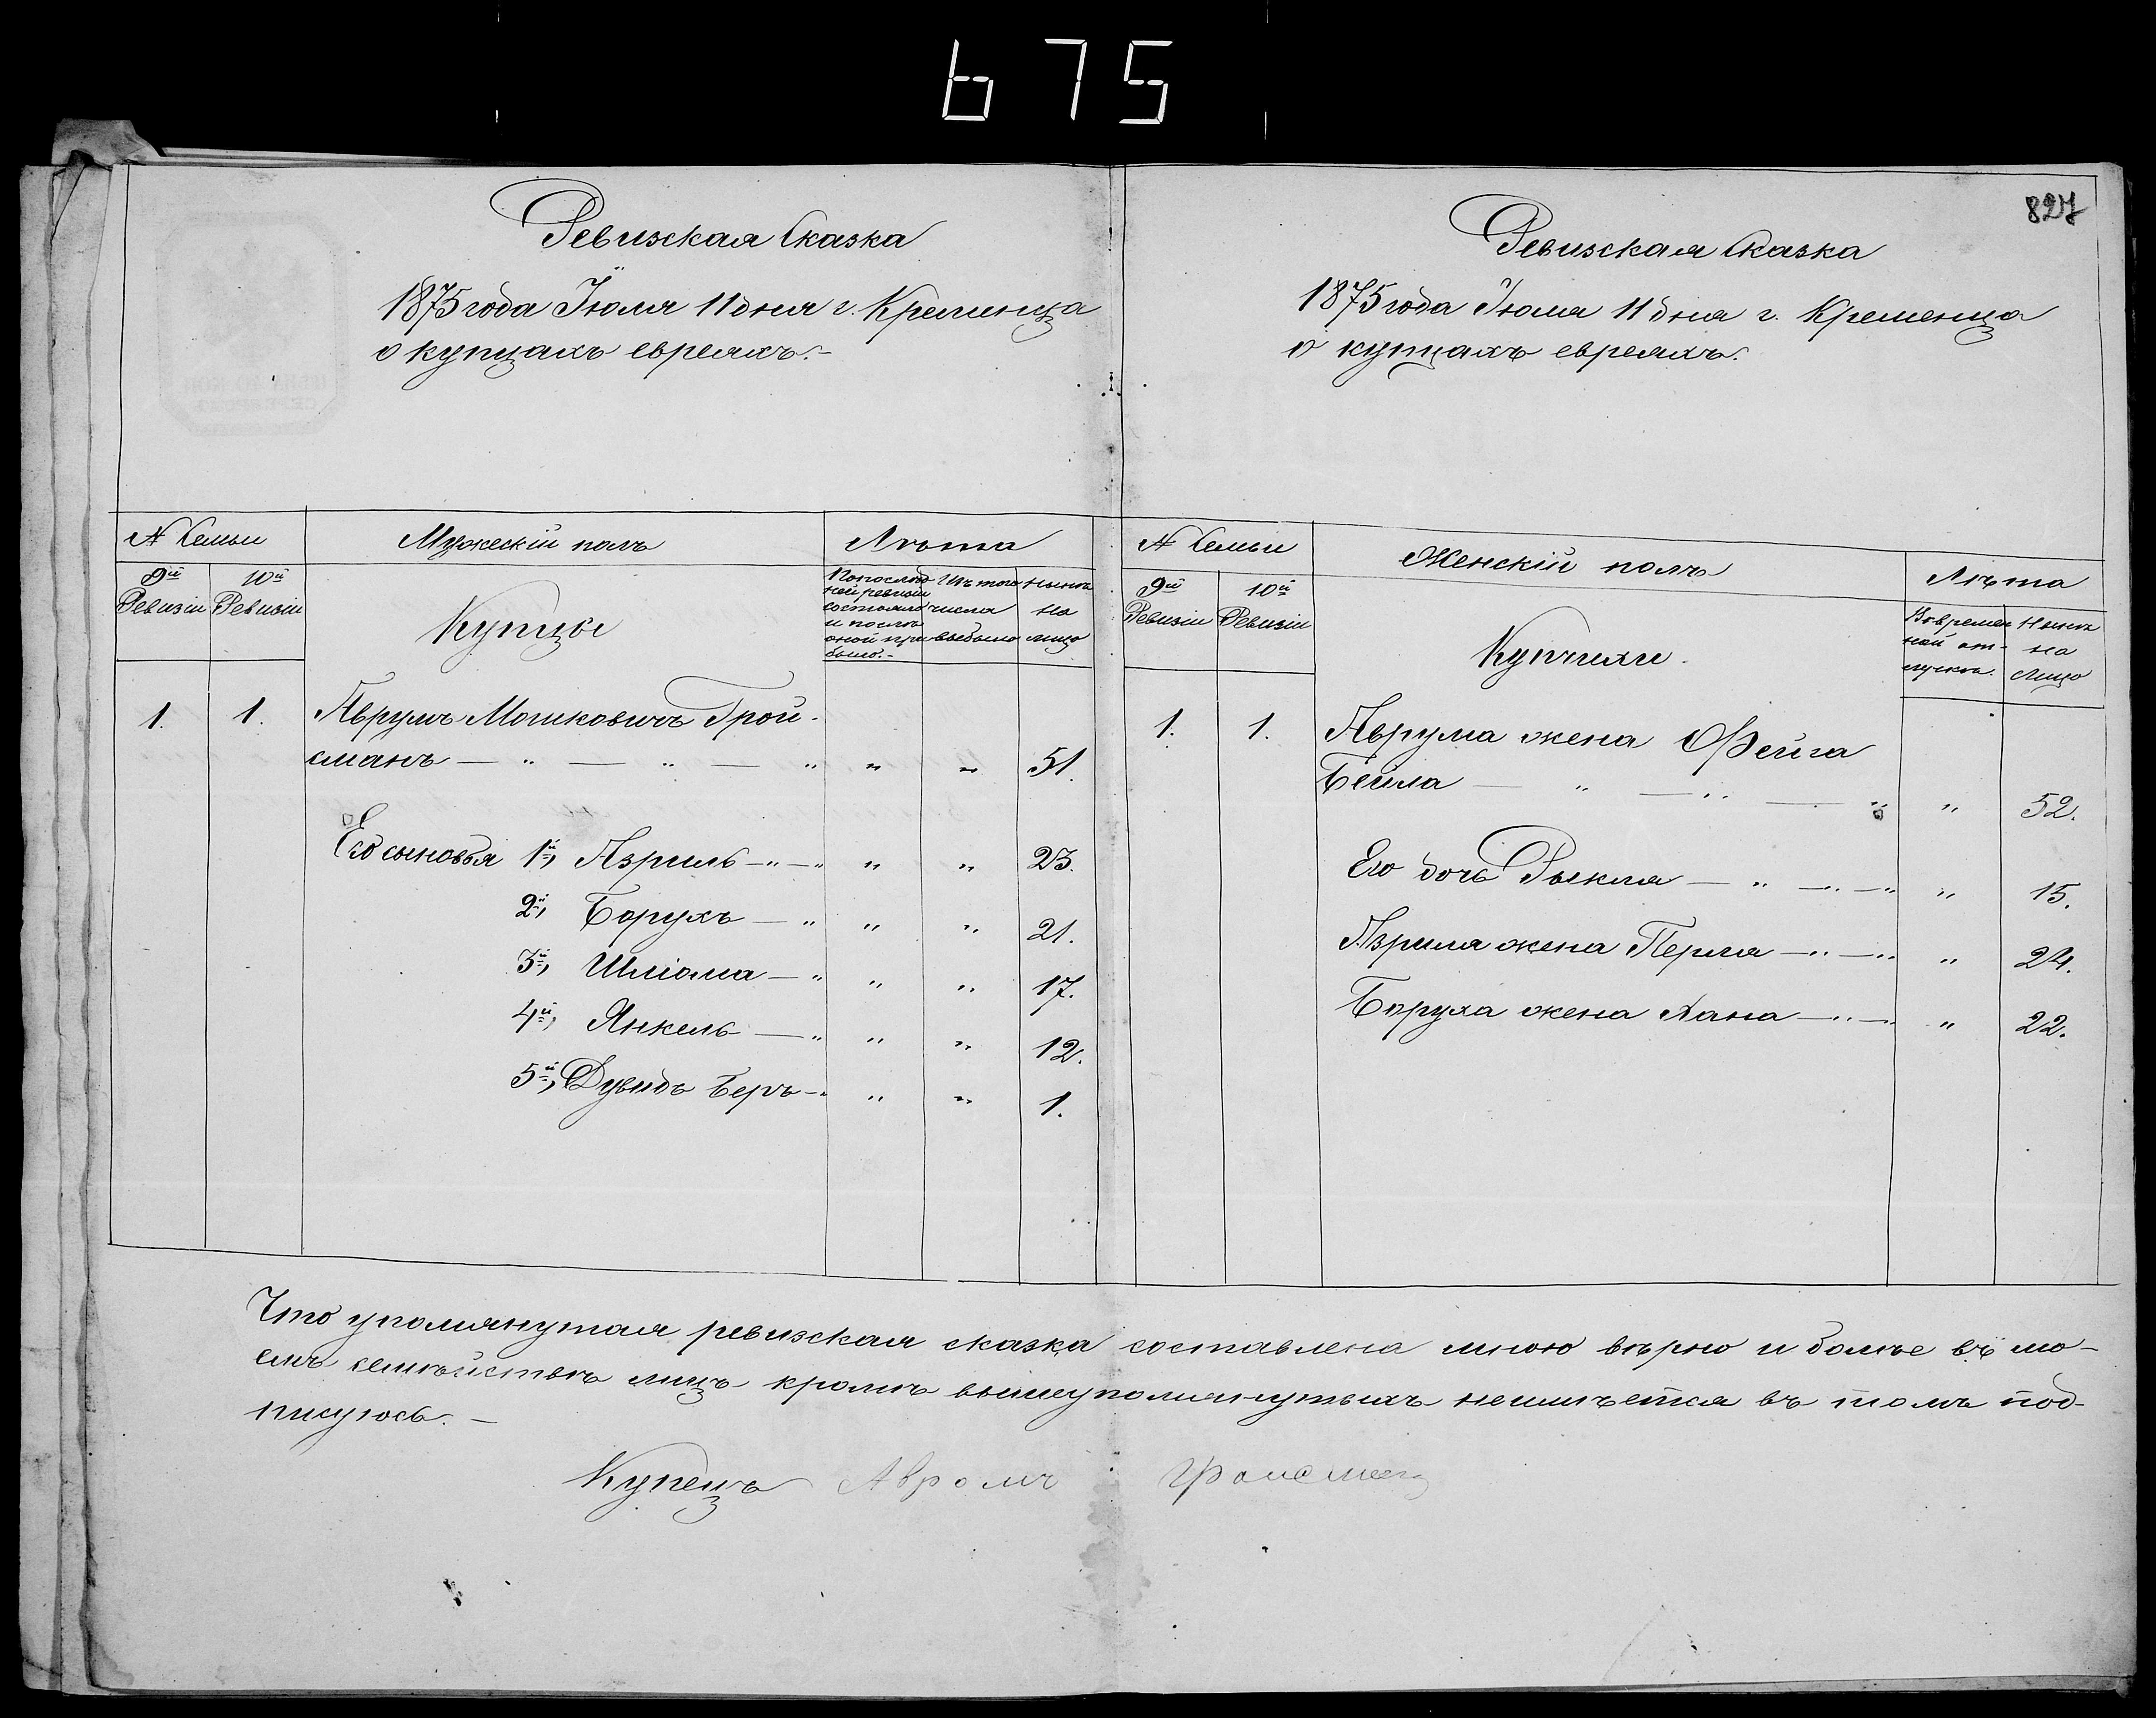 675
827
Ревизская Сказка
1875 года Іюля 11 дня г. Кременца
о купцахъ евреяхъ.-
№ Семьи
Мужескій полъ
Лѣта
9й Ревизіи
10й Ревизіи
Купцы
По послѣд-
ней ревизіи
состояло
и послѣ
оной при-
было.-
Изъ того
числа
выбыло
Нынѣ
на
лицо
1. 1. Аврумъ Мошковичъ Грой-
сманъ — " — " — " " " 51.
Его сыновья 1й, Азриль —"—" " " 23.
2й, Борухъ — " " " 21.
3й, Шліома — " " " 17.
4й, Янкель — " " " 12.
5й, Дувидъ Беръ —" " " 1.
Ревизская Сказка
1875 года Іюля 11 дня г. Кременца
о купцахъ евреяхъ.
№ Семьи
Женскій полъ
Лѣта
9й Ревизіи
10й Ревизіи
Купчихи.
Во времен-
ной от-
лучкѣ.
Нынѣ
на
Лицо
1. 1. Аврума жена Фейга
Бейла — " — " — " " 52.
Его дочь Рыкля — " —"—" " 15.
Азриля жена Перля —"—" " 24.
Боруха жена Хана —"—" " 22.
Что упомянутая ревизская сказка составлена мною вѣрно и болѣе въ мо-
емъ семѣйствѣ лицъ кромѣ вышеупомянутыхъ неимѣется въ томъ под-
писуюсь. —
Купецъ Авромъ